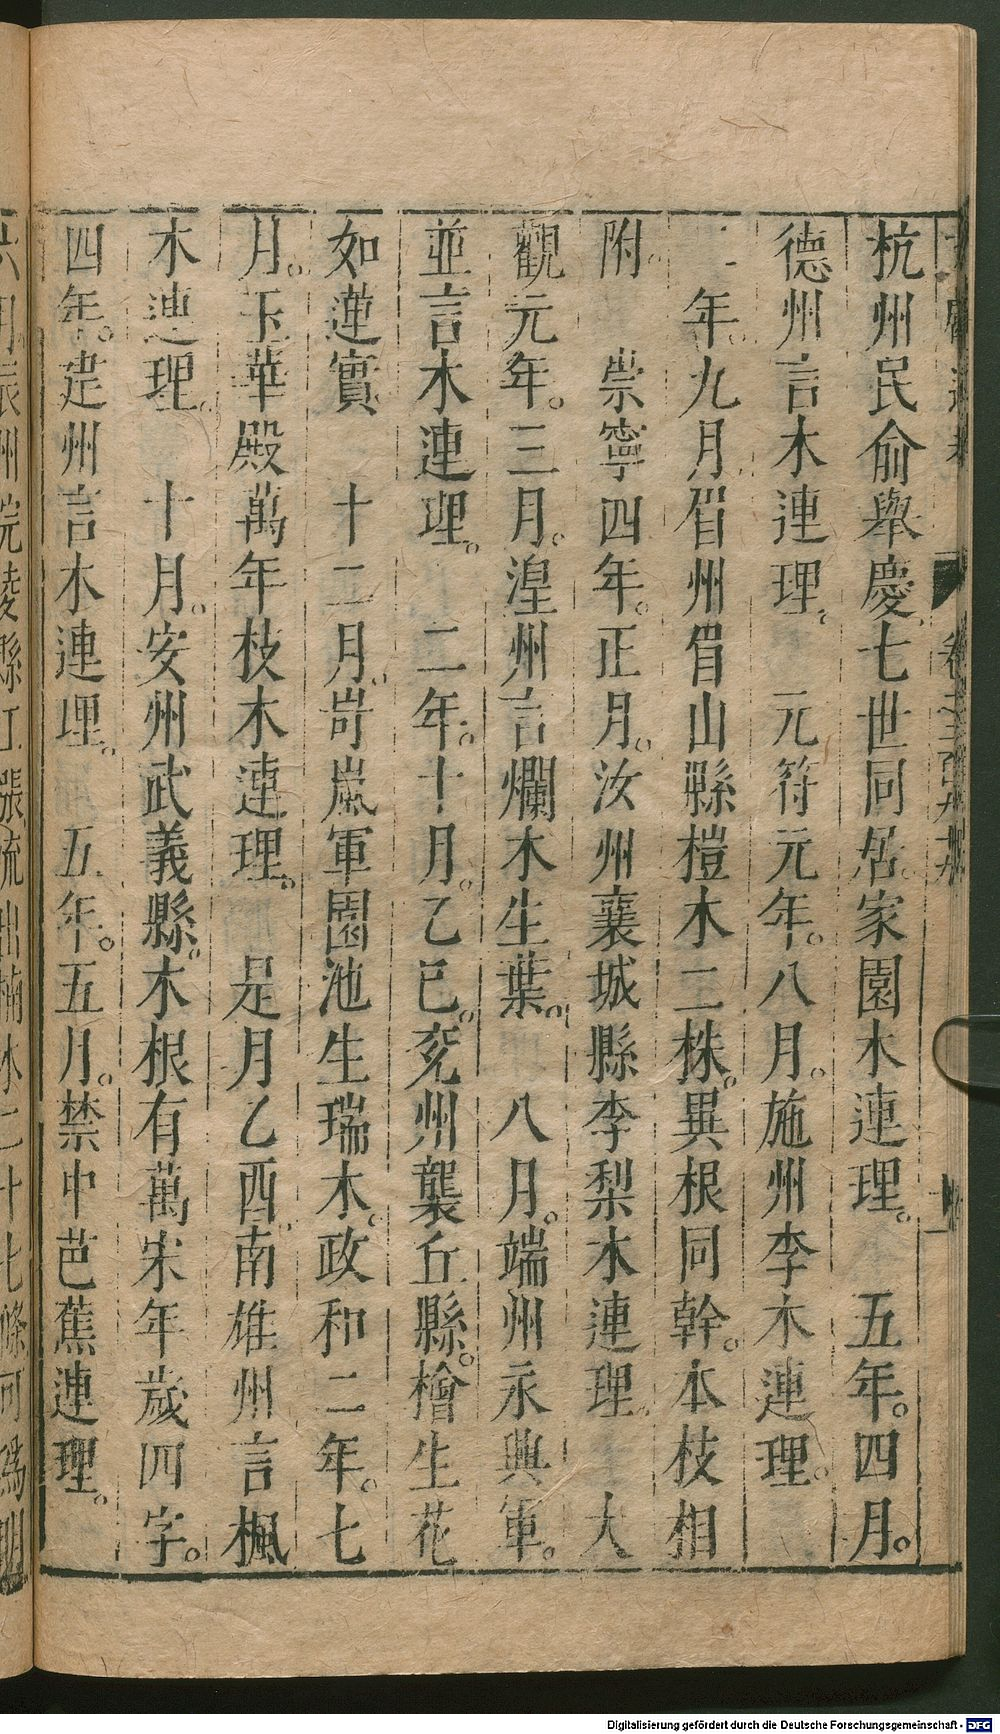 杭州民俞舉慶。七世同居。家園木連理。　五年。四月。
德州言木連理。　元符元年。八月。施州李木連理。
二年。九月。眉州眉山縣榿木二株。異根同幹。木枝相
附。　崇寧四年。正月。汝州襄城縣李梨木連理。　大
觀元年。三月。湟州言爛木生葉。　八月。端州永興軍。
並言木連理。　二年。十月。乙巳。兗州龔丘縣。檜生花
如蓮實。　十二月。岢嵐軍園池生瑞木。政和二年。七
月。玉華殿萬年枝木連理。　是月乙酉。南雄州言楓
木連理。　十月。安州武義縣。木根有萬宋年歲四字。
四年。建州言木連理。　五年。五月。禁中芭蕉連理。
六月辰州沅陵縣江漲流出楠木二十七條可爲明
Digitalisierung gefördert durch die Deutsche Forschungsgemeinschaft - DFG